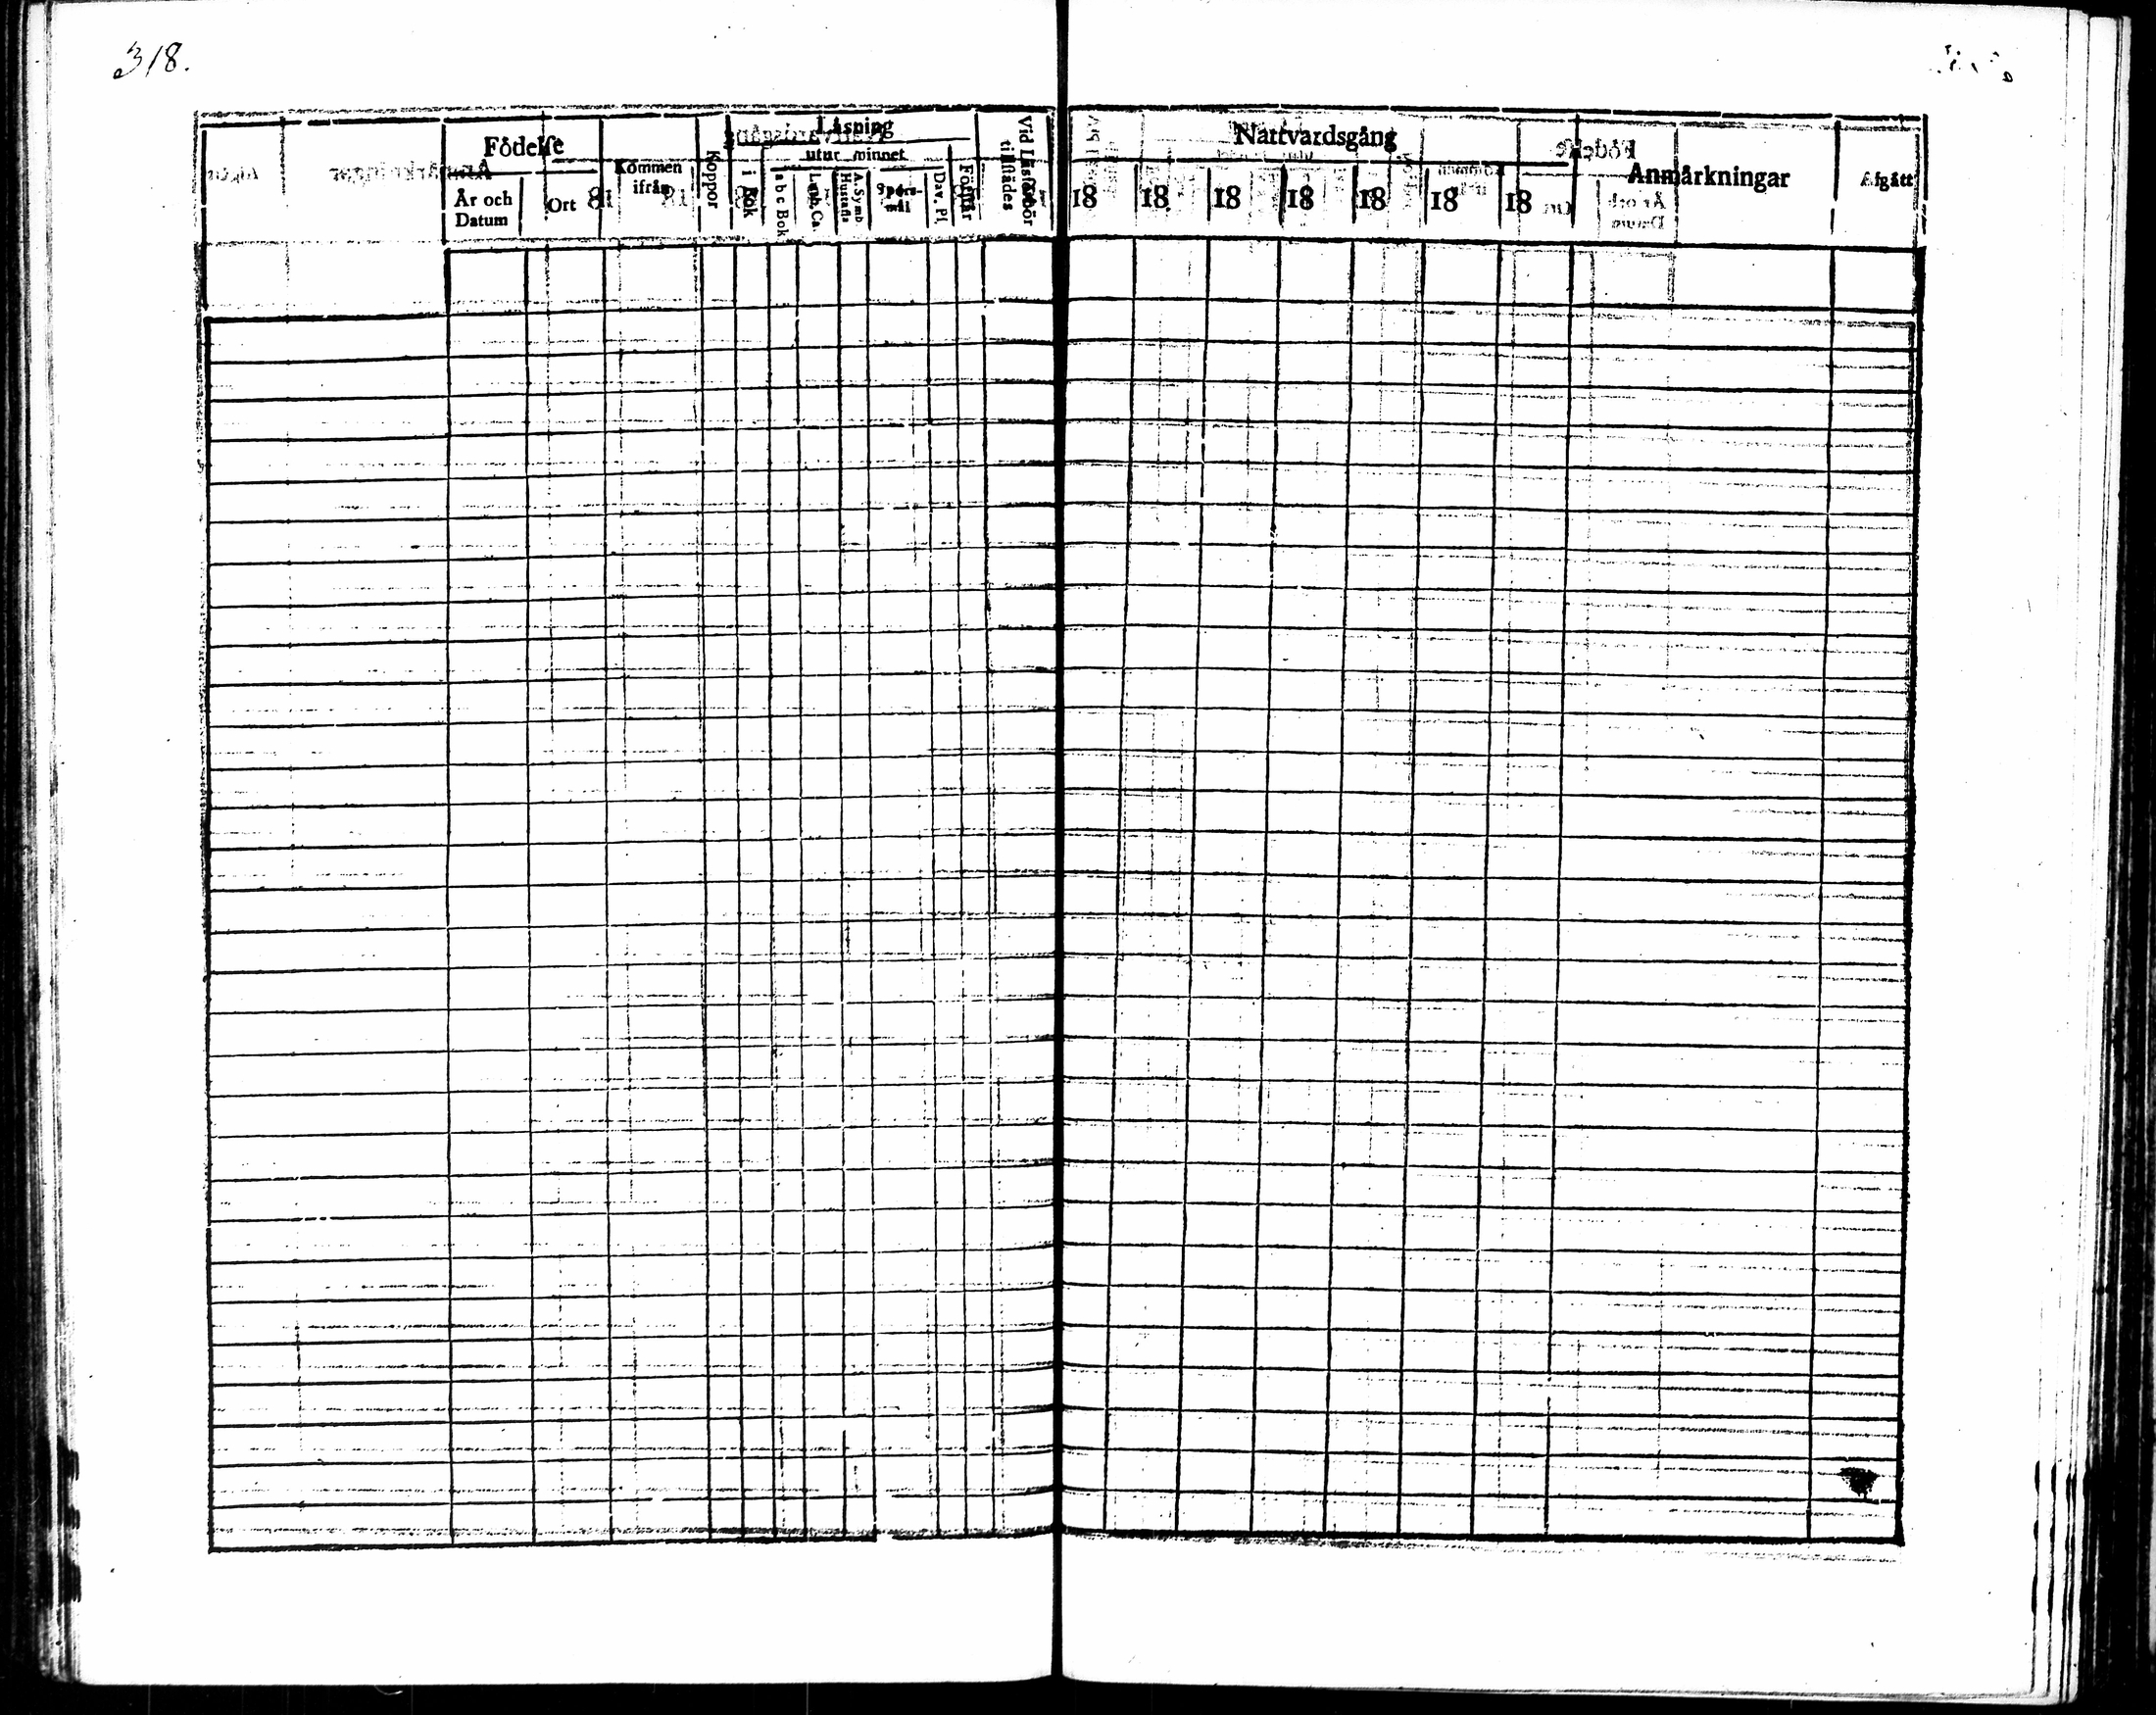 318.
Födelse
År och Datum
Ort
Kommen ifrån
Koppor
Läsning
i Bok
utur minnet
a b c Bok
Luth. Ca.
A. Symb Hustafla
Spörsmål
Dav. Ps
Förstår
Vid Läsförhör tillstädes
Nattvardsgång
18 18 18 18 18 18 18
Anmärkningar
Afgått